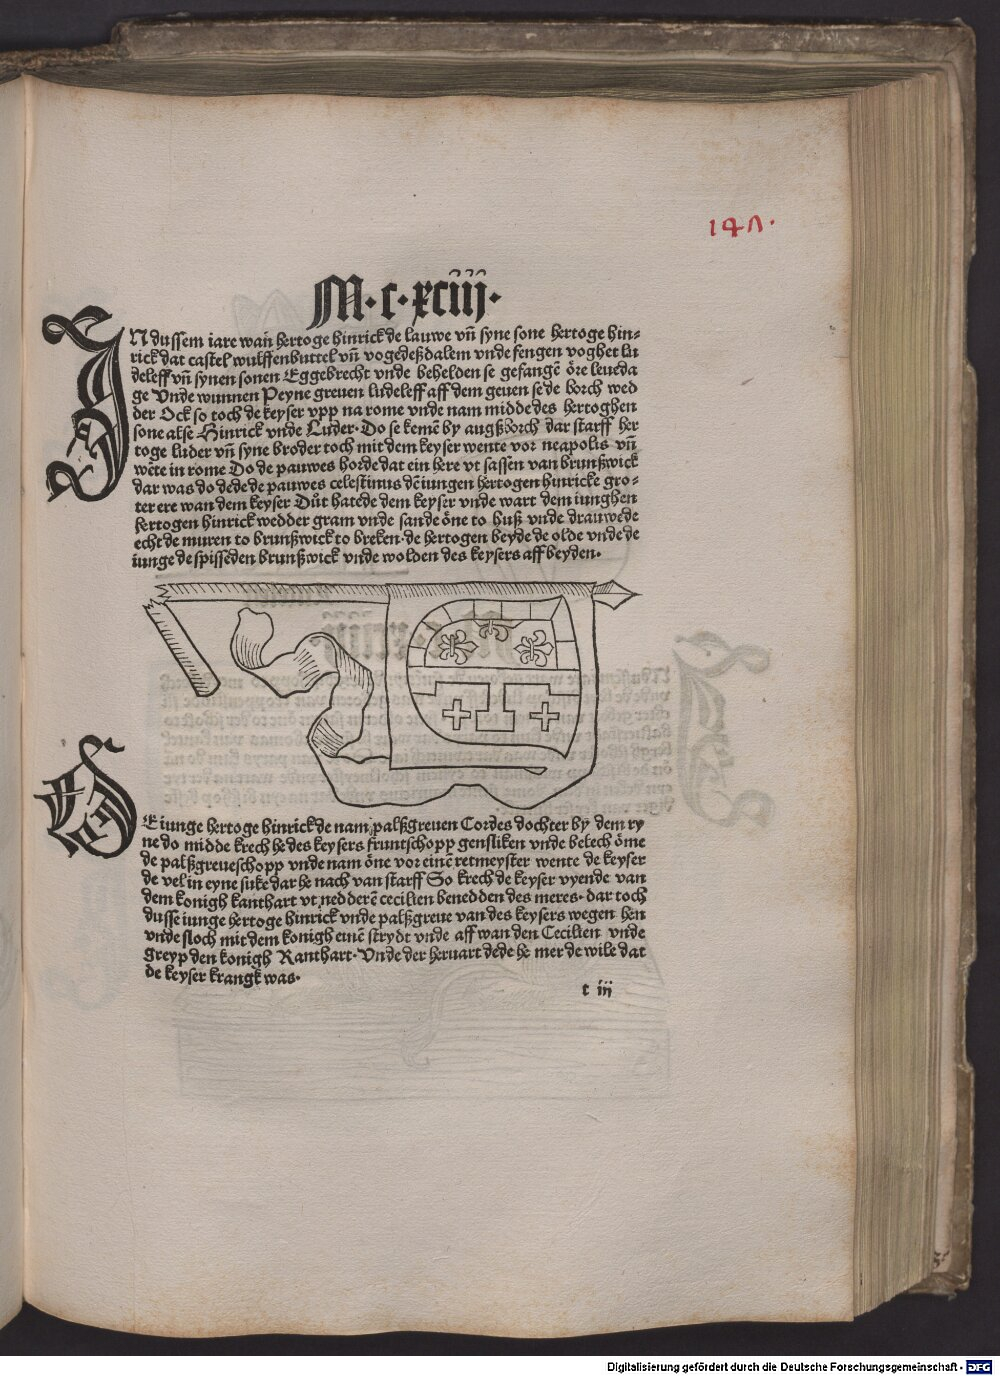 147.
M·c·xciiij·
IN dussem iare wan̄ hertoge hinrick de lauwe vn̄ syne sone hertoge hin⸗
rick dat castel wulffenbuttel vn̄ vogedeßdalem vnde fengen voghet lu
deleff vn̄ synen sonen Eggebrecht vnde behelden se gefangē ȯre leueda
ge Vnde wunnen Peyne greuen ludeleff aff dem geuen se de borch wed
der Ock so toch de keyser vpp na rome vnde nam midde des hertoghen
sone alse Hinrick vnde Luder· Do se kemē by augßborch dar starff her
toge luder vn̄ syne broder toch mit dem keyser wente vor neapolis vn̄
wēte in rome Do de pauwes horde dat ein here vt sassen van brunßwick
dar was do dede de pauwes celestinus dē iungen hertogen hinricke gro⸗
ter ere wan dem keyser Dūt hatede dem keyser vnde wart dem iunghen
hertogen hinrick wedder gram vnde sande ȯne to huß vnde drauwede
echt de muren to brunßwick to breken· de hertogen beyde de olde vnde de
iunge de spisseden brunßwick vnde wolden des keysers aff beyden·
DE iunge hertoge hinrick de nam palßgreuen Cordes dochter by dem ry
ne do midde krech he des keysers fruntschopp gensliken vnde belech ȯme
de palßgreueschopp vnde nam ȯne vor einē retmeyster wente de keyser
de vel in eyne suke dar he nach van starff So krech de keyser vyende van
dem konigh kanthart vt nedderē cecilien benedden des meres· dar toch
dusse iunge hertoge hinrick vnde palßgreue van des keysers wegen hen
vnde sloch mit dem konigh einē strydt vnde aff wan den Cecilien vnde
greyp den konigh Kanthart· Vnde der heruart dede he mer de wile dat
de keyser krangk was·
t iij
Digitalisierung gefördert durch die Deutsche Forschungsgemeinschaft - DFG